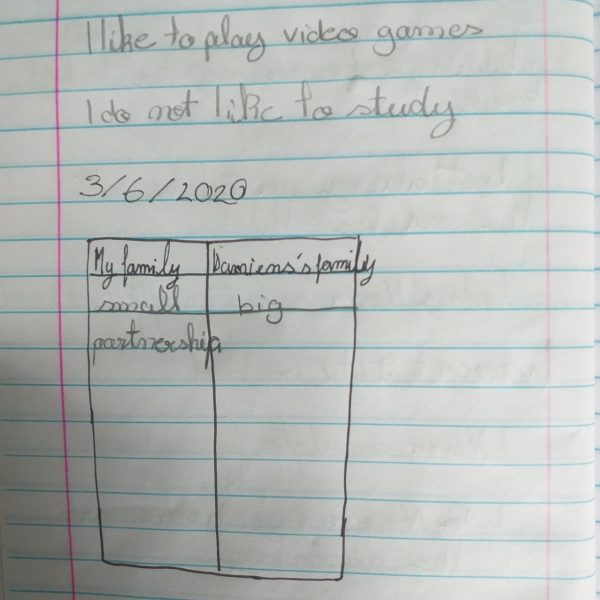 I like to play video games
I do not like to study
3/6/2020
My family Damiens's family
small big
partnership